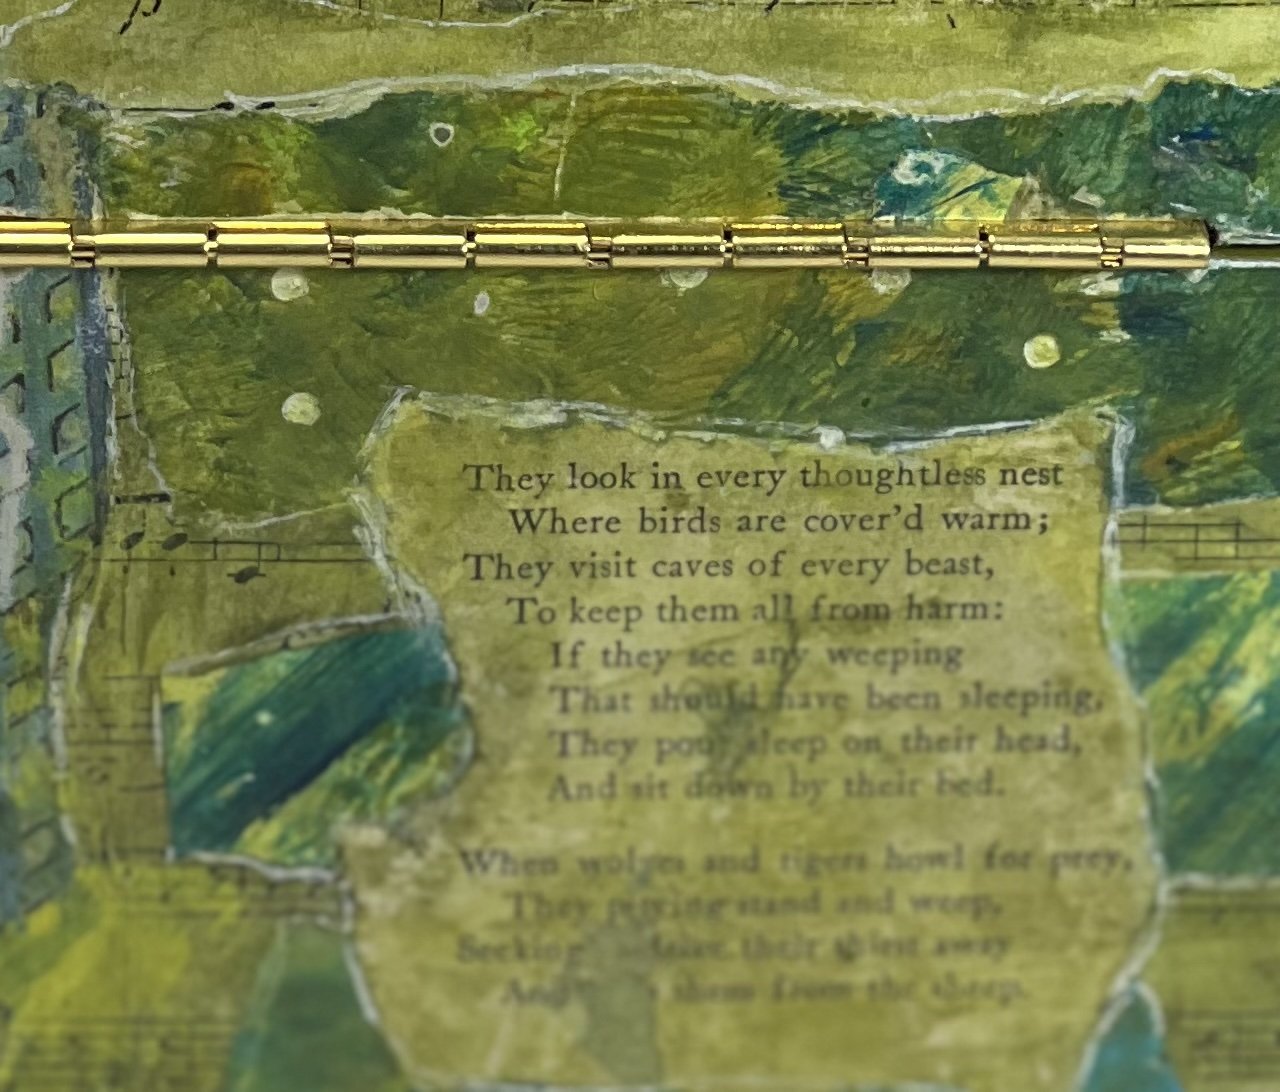 They look in every thoughtless nest
Where birds are cover'd warm;
They visit caves of every beast,
To keep them all from harm:
If they see any weeping
That should have been sleeping,
They pour sleep on their head,
And sit down by their bed.
When wolves and tigers howl for prey,
They pitying stand and weep,
Seeking their thirst away
And them from the sheep.